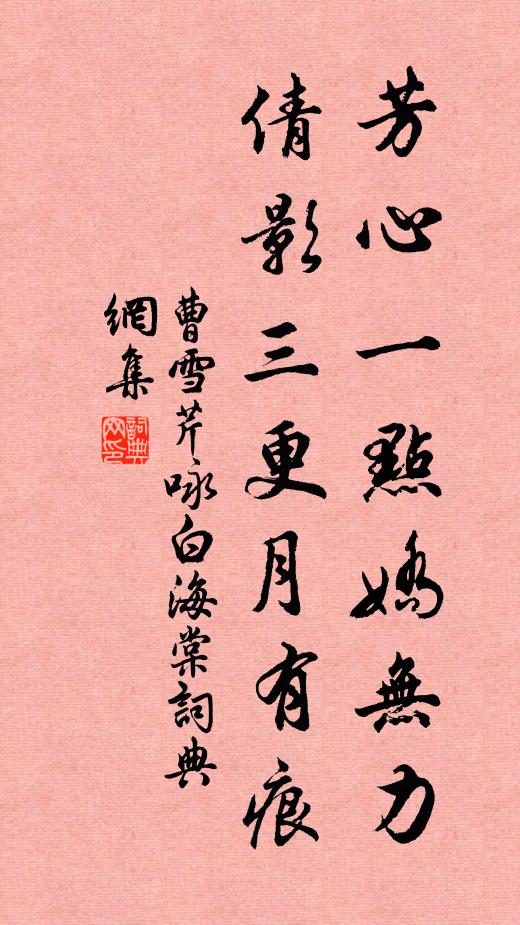 芳心一點嬌無力
倩影三更月有痕
曹雪芹咏白海棠詞典
網集
詞典網印